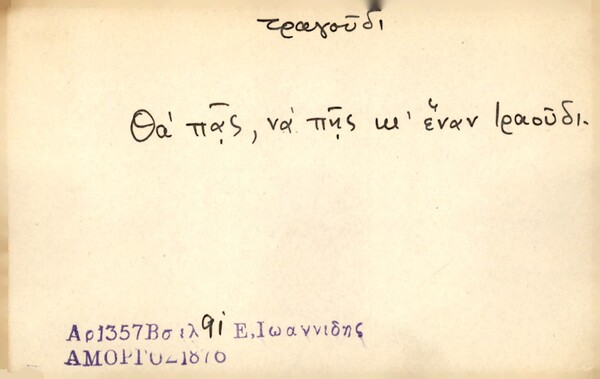 τραγοῦδι
Θὰ πᾷς, νὰ πῇς κι' ἕναν τραοῦδι.
Αρ1357Βσελ 91 Ε,Ιωαννιδης
ΑΜΟΡΓΟΣ1876